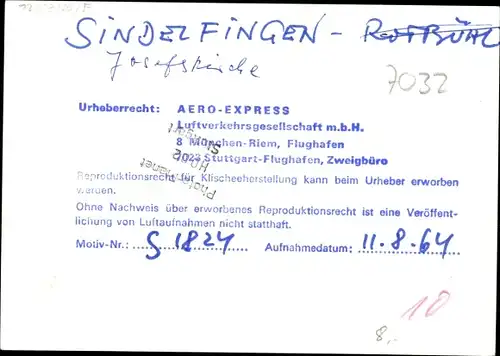 SINDELFINGEN - ROTBÜHL
Josefskirche
7032
Urheberrecht: AERO-EXPRESS
Luftverkehrsgesellschaft m.b.H.
8 München-Riem, Flughafen
7023 Stuttgart-Flughafen, Zweigbüro
Reproduktionsrecht für Klischeeherstellung kann beim Urheber erworben
werden.
Ohne Nachweis über erworbenes Reproduktionsrecht ist eine Veröffent-
lichung von Luftaufnahmen nicht statthaft.
Motiv-Nr.: S 1824 Aufnahmedatum: 11.8.64
10
8,-